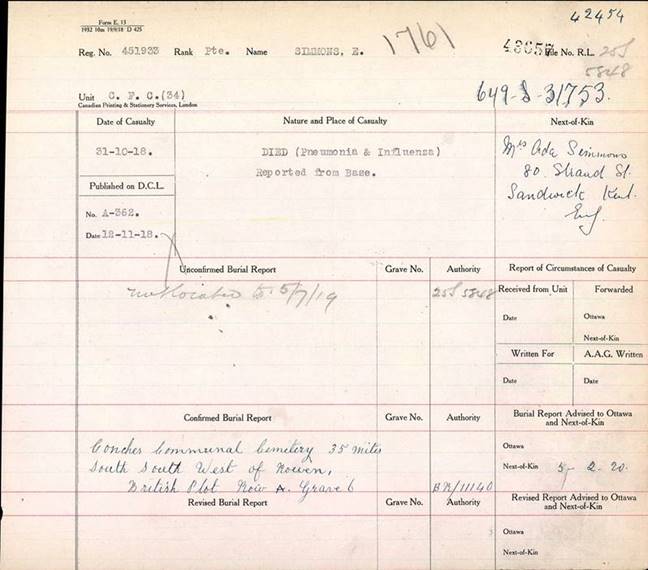 Form E. 13
1932 10m 19/9/18 D 425
42454
Reg. No. 451933 Rank Pte. Name SIMMONS, E. 1761 File No. R.L. 25S
5848
649-S-31753.
Unit C. F. C.(34)
Canadian Printing & Stationery Services, London
Date of Casualty Nature and Place of Casualty Next-of-Kin
31-10-18. DIED (Pneumonia & Influenza) Mrs Ada Simmons
Reported from Base. 80. Strand St.
Sandwich Kent.
Eng.
Published on D.C.L.
No. A-362.
Date 12-11-18.
Unconfirmed Burial Report Grave No. Authority Report of Circumstances of Casualty
to 5/7/19 25S 5848 Received from Unit Forwarded
Date Ottawa
Next-of-Kin
Written For A.A.G. Written
Date Date
Confirmed Burial Report Grave No. Authority Burial Report Advised to Ottawa
and Next-of-Kin
Conches Communal Cemetery 35 miles Ottawa
South South West of Rouen, Next-of-Kin 5- 2-20.
British Plot Row A. Grave 6 BR/11140
Revised Burial Report Grave No. Authority Revised Report Advised to Ottawa
and Next-of-Kin
Ottawa
Next-of-Kin